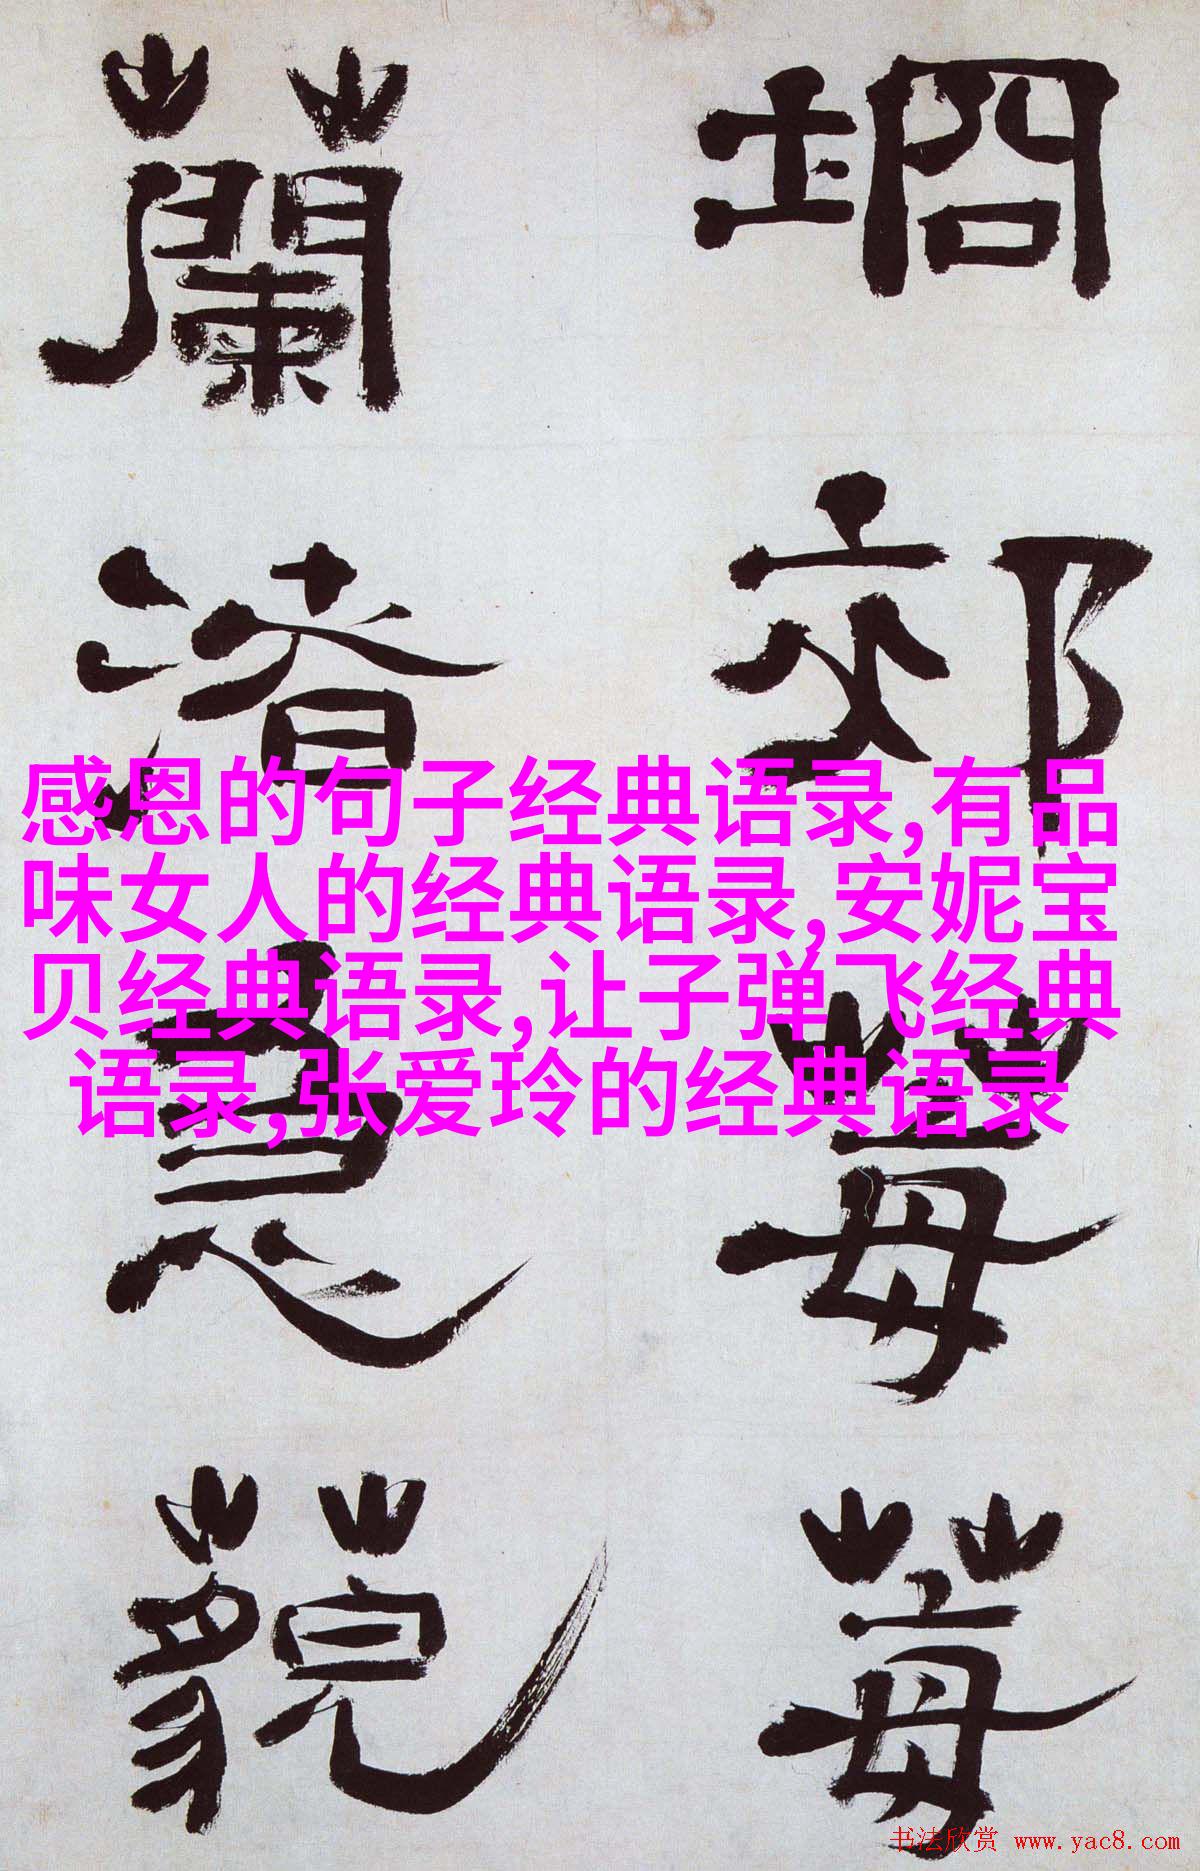 感恩的句子经典语录,有品
味女人的经典语录,安妮宝
贝经典语录,让子弹飞经典
语录,张爱玲的经典语录
坰郊莓莓
蘭渚急藐
书法欣赏 www.yac8.com